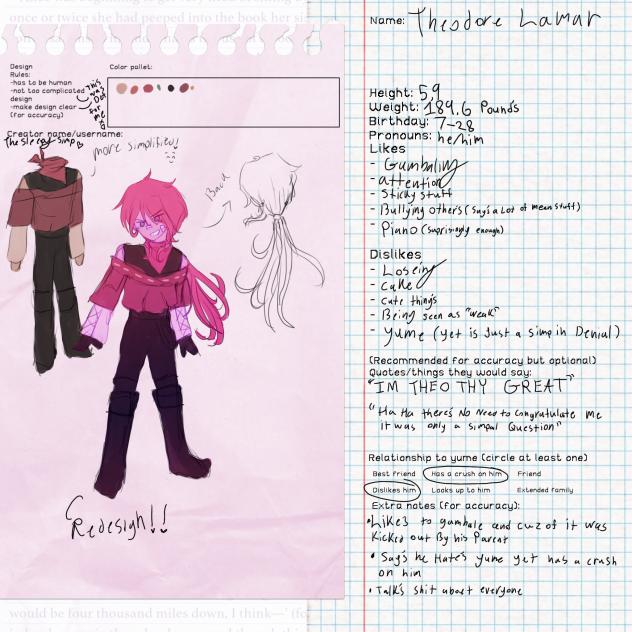 once or twice she had peeped into the book her sis
Design
Rules:
-has to be human
-not too complicated
design
-make design clear
(for accuracy)
This was Dot for me xd
Color pallet:
Creator name/username:
The sleepy simp
more simplified!!
Back
Redesign!!
would be four thousand miles down, I think—' (fo
Name: Theodore Lamar
Height: 5,9
Weight: 189.6 Pounds
Birthday: 7-28
Pronouns: he/him
Likes
- Gumbaling
- attention
- Sticky stuff
- Bullying others (Say's a Lot of mean stuff)
- Piano (suprisingly enough)
Dislikes
- Loseing
- cake
- cute thing's
- Being seen as "weak"
- Yume (yet is Just a simp in Denial)
(Recommended for accuracy but optional)
Quotes/things they would say:
"IM THEO THY GREAT"
"Ha Ha there's No Need to Congratulate me
it was only a simpal Question"
Relationship to yume (circle at least one)
Best friend Has a crush on him Friend
Dislikes him Looks up to him Extended family
Extra notes (for accuracy):
• Likes to gumbale and cuz of it was
Kicked out By his Parent
• Say's he Hates yume yet has a crush
on him
• Talk's shit about everyone